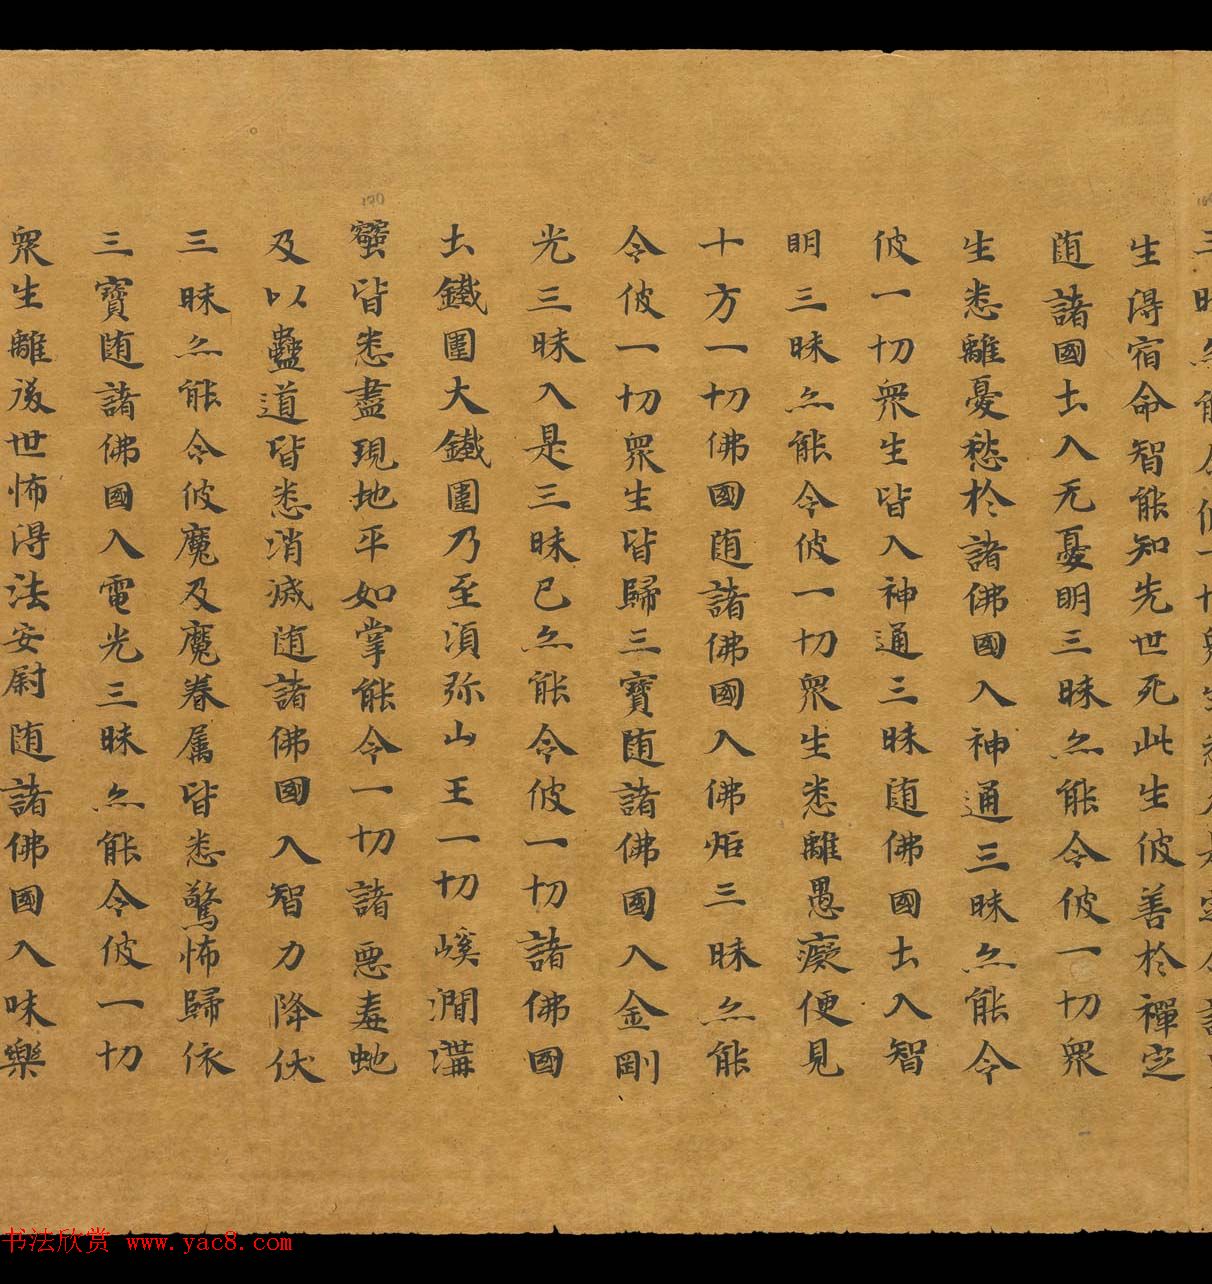 三昧亦能令彼一切眾生
生得宿命智能知先世死此生彼善於禪定
随諸國土入无憂明三昧亦能令彼一切眾
生悉離憂愁於諸佛國入神通三昧亦能令
彼一切眾生皆入神通三昧随佛國土入智
明三昧亦能令彼一切眾生悉離愚癡便見
十方一切佛國随諸佛國入佛炬三昧亦能
令彼一切眾生皆歸三寶随諸佛國入金剛
光三昧入是三昧已亦能令彼一切諸佛國
土鐵圍大鐵圍乃至湏弥山王一切嵠澗溝
皆悉盡現地平如掌能令一切諸惡毒虵
及以蠱道皆悉消滅随諸佛國入智力降伏
三昧亦能令彼魔及魔眷属皆悉驚怖歸依
三寶随諸佛國入電光三昧亦能令彼一切
眾生離後世怖得法安尉随諸佛國入味樂
170
书法欣赏 www.yac8.com